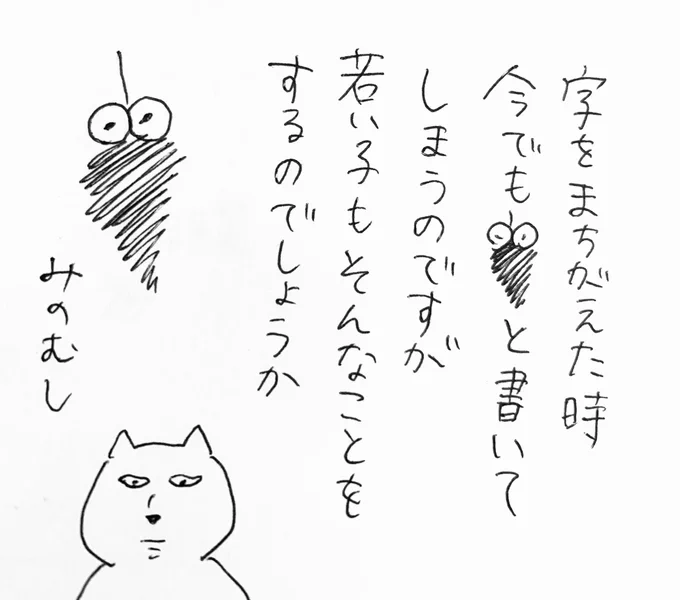 字をまちがえた時
今でもと書いて
しまうのですが
若い子もそんなことを
するのでしょうか
みのむし